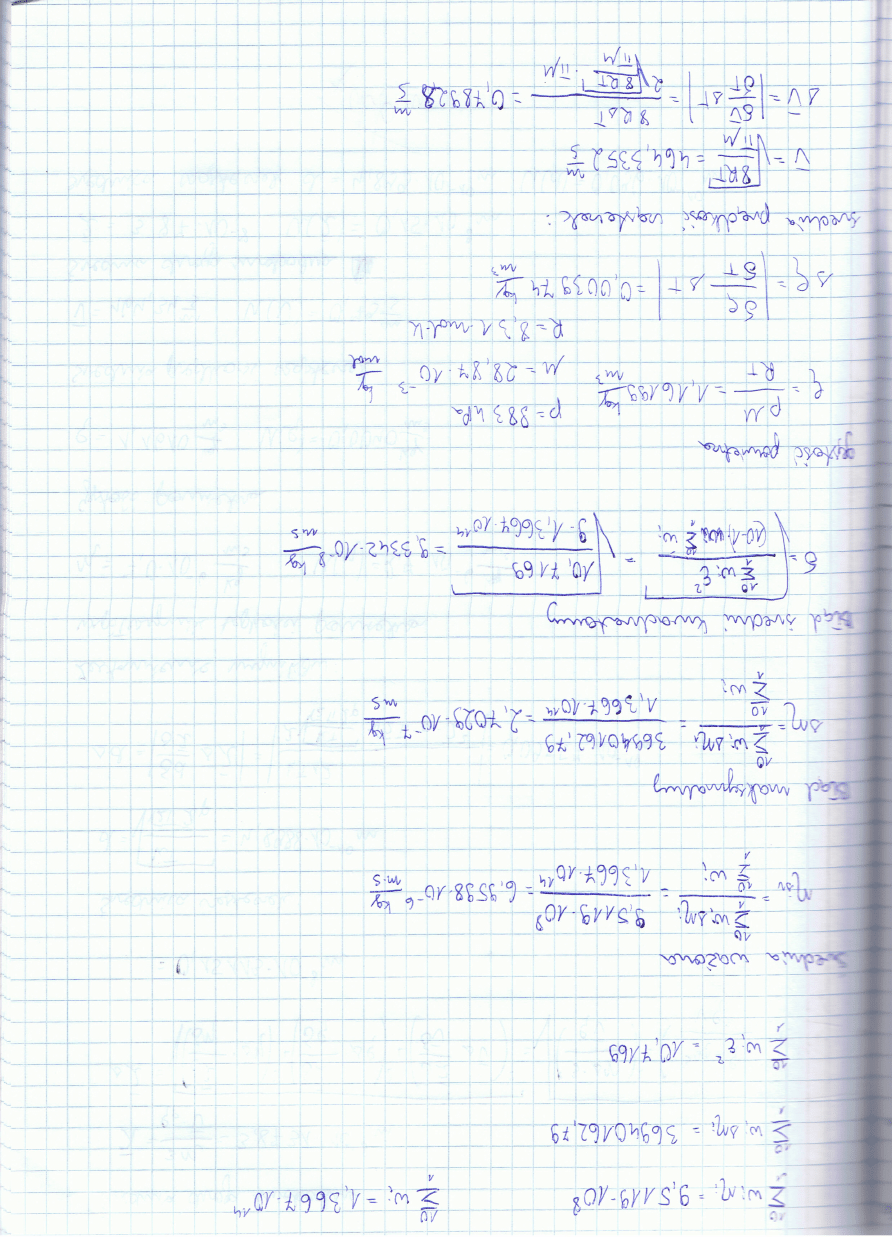 10 Σ 1 wᵢηᵢ = 9,5119·10⁸    10 Σ 1 wᵢ = 1,3667·10¹⁴
10 Σ 1 wᵢΔηᵢ = 36940162,79
10 Σ 1 wᵢε² = 10,7169
średnia ważona
ηśr = 10 Σ 1 wᵢΔηᵢ / 10 Σ 1 wᵢ = 9,5119·10⁸ / 1,3667·10¹⁴ = 6,9598·10⁻⁶ kg/m·s
Błąd maksymalny
Δη = 10 Σ 1 wᵢΔηᵢ / 10 Σ 1 wᵢ = 36940162,79 / 1,3667·10¹⁴ = 2,7029·10⁻⁷ kg/ms
Błąd średni kwadratowy
δ = √(10 Σ 1 wᵢε² / (10-1) 10 Σ 1 wᵢ) = √(10,7169 / 9·1,3667·10¹⁴) = 9,3342·10⁻⁸ kg/ms
gęstość powietrza
ρ = pM / RT = 1,16199 kg/m³    p = 983 hPa
M = 28,87·10⁻³ kg/mol
R = 8,31·mol·K
Δρ = |δρ/δT ΔT| = 0,003974 kg/m³
średnia prędkość cząsteczek:
V̄ = √(8RT/πM) = 464,3352 m/s
ΔV̄ = |δV̄/δT ΔT| = 8RΔT / 2√(8RT/πM)·πM = 0,78928 m/s